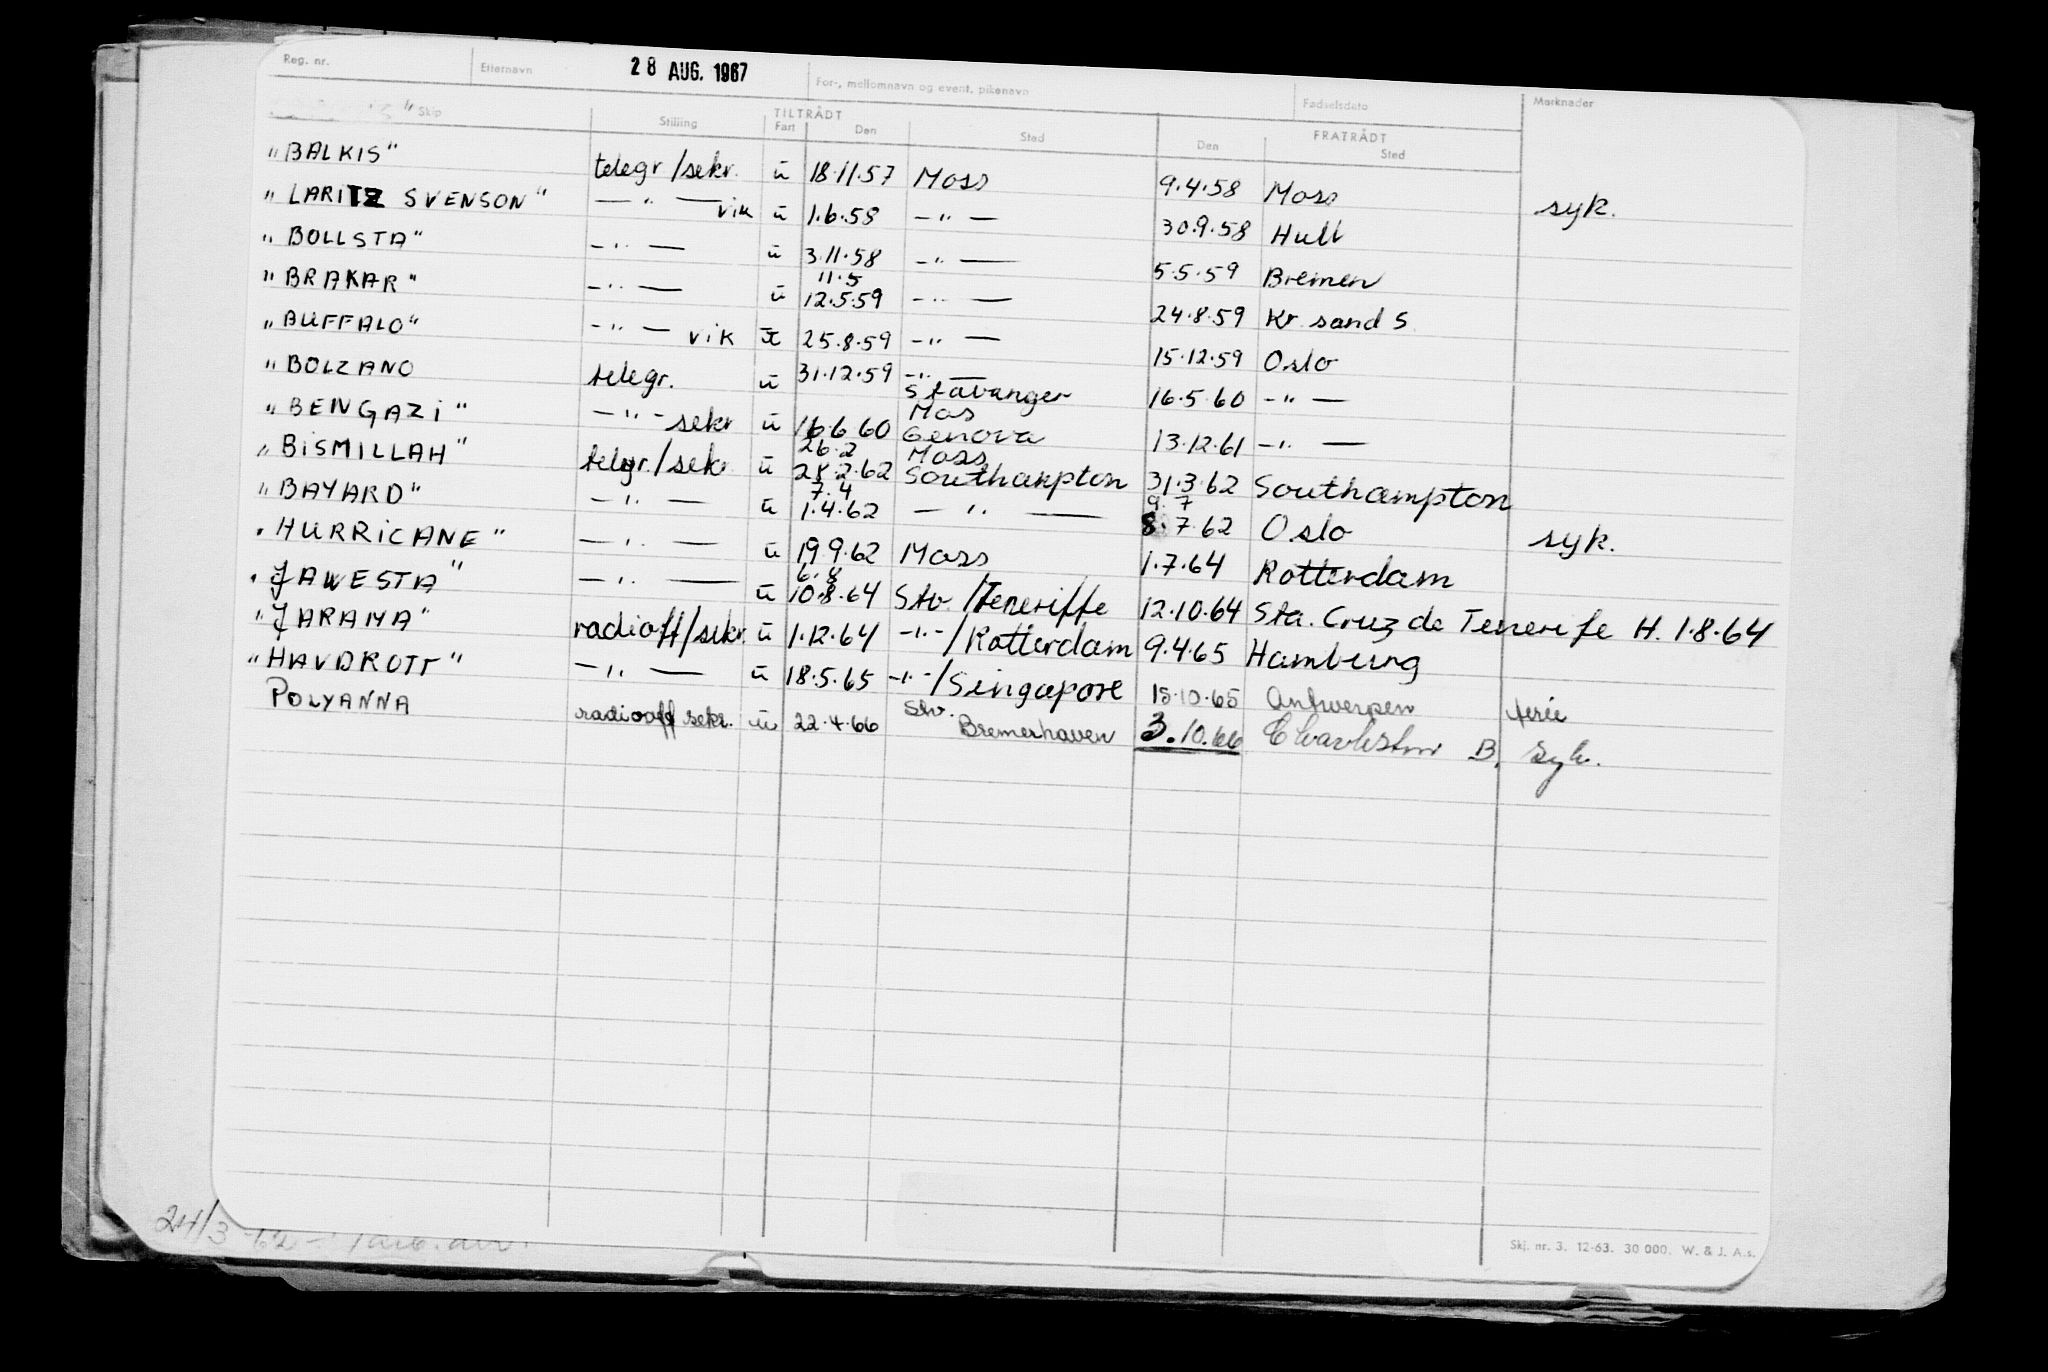 Reg. nr. Etternavn 28 AUG. 1967 For-, mellomnavn og event. pikenavn Fødselsdato Merknader
Skip Stilling TILTRÅDT Fart Den Sted FRATRÅDT Den Sted
"BALKIS" telegr/sekr. u 18.11.57 Moss 9.4.58 Moss syk.
"LARITZ SVENSON" — " — vik u 1.6.58 — " — 30.9.58 Hull
"BOLLSTA" — " — u 3.11.58 — " — 5.5.59 Bremen
"BRAKAR" — " — u 11.5 12.5.59 — " — 24.8.59 Kr. sand S.
"BUFFALO" — " — vik u 25.8.59 — " — 15.12.59 Oslo
"BOLZANO telegr. u 31.12.59 — " — Stavanger 16.5.60 — " —
"BENGAZI" — " — sekr u 16.6.60 Mos Genova 13.12.61 — " —
"BISMILLAH" telgr./sekr. u 26.2 28.2.62 Moss Southampton 31.3.62 Southampton
"BAYARD" — " — u 7.4 1.4.62 — " — 9.7 8.7.62 Oslo syk.
"HURRICANE" — " — u 19.9.62 Moss 1.7.64 Rotterdam
"JAWESTA" — " — u 6.8 10.8.64 Stv./Teneriffe 12.10.64 Sta. Cruz de Tenerife H. 1.8.64
"JARAMA" radioff/sekr. u 1.12.64 — " — /Rotterdam 9.4.65 Hamburg
"HAVDROTT" — " — u 18.5.65 — " — /Singapore 15.10.65 Antwerpen ferie
POLYANNA radiooff sekr. u 22.4.66 Stv. Bremerhaven 3.10.66 Charleston B. syk.
24/3-62 -
Skj. nr. 3. 12-63. 30 000. W. & J. A.s.